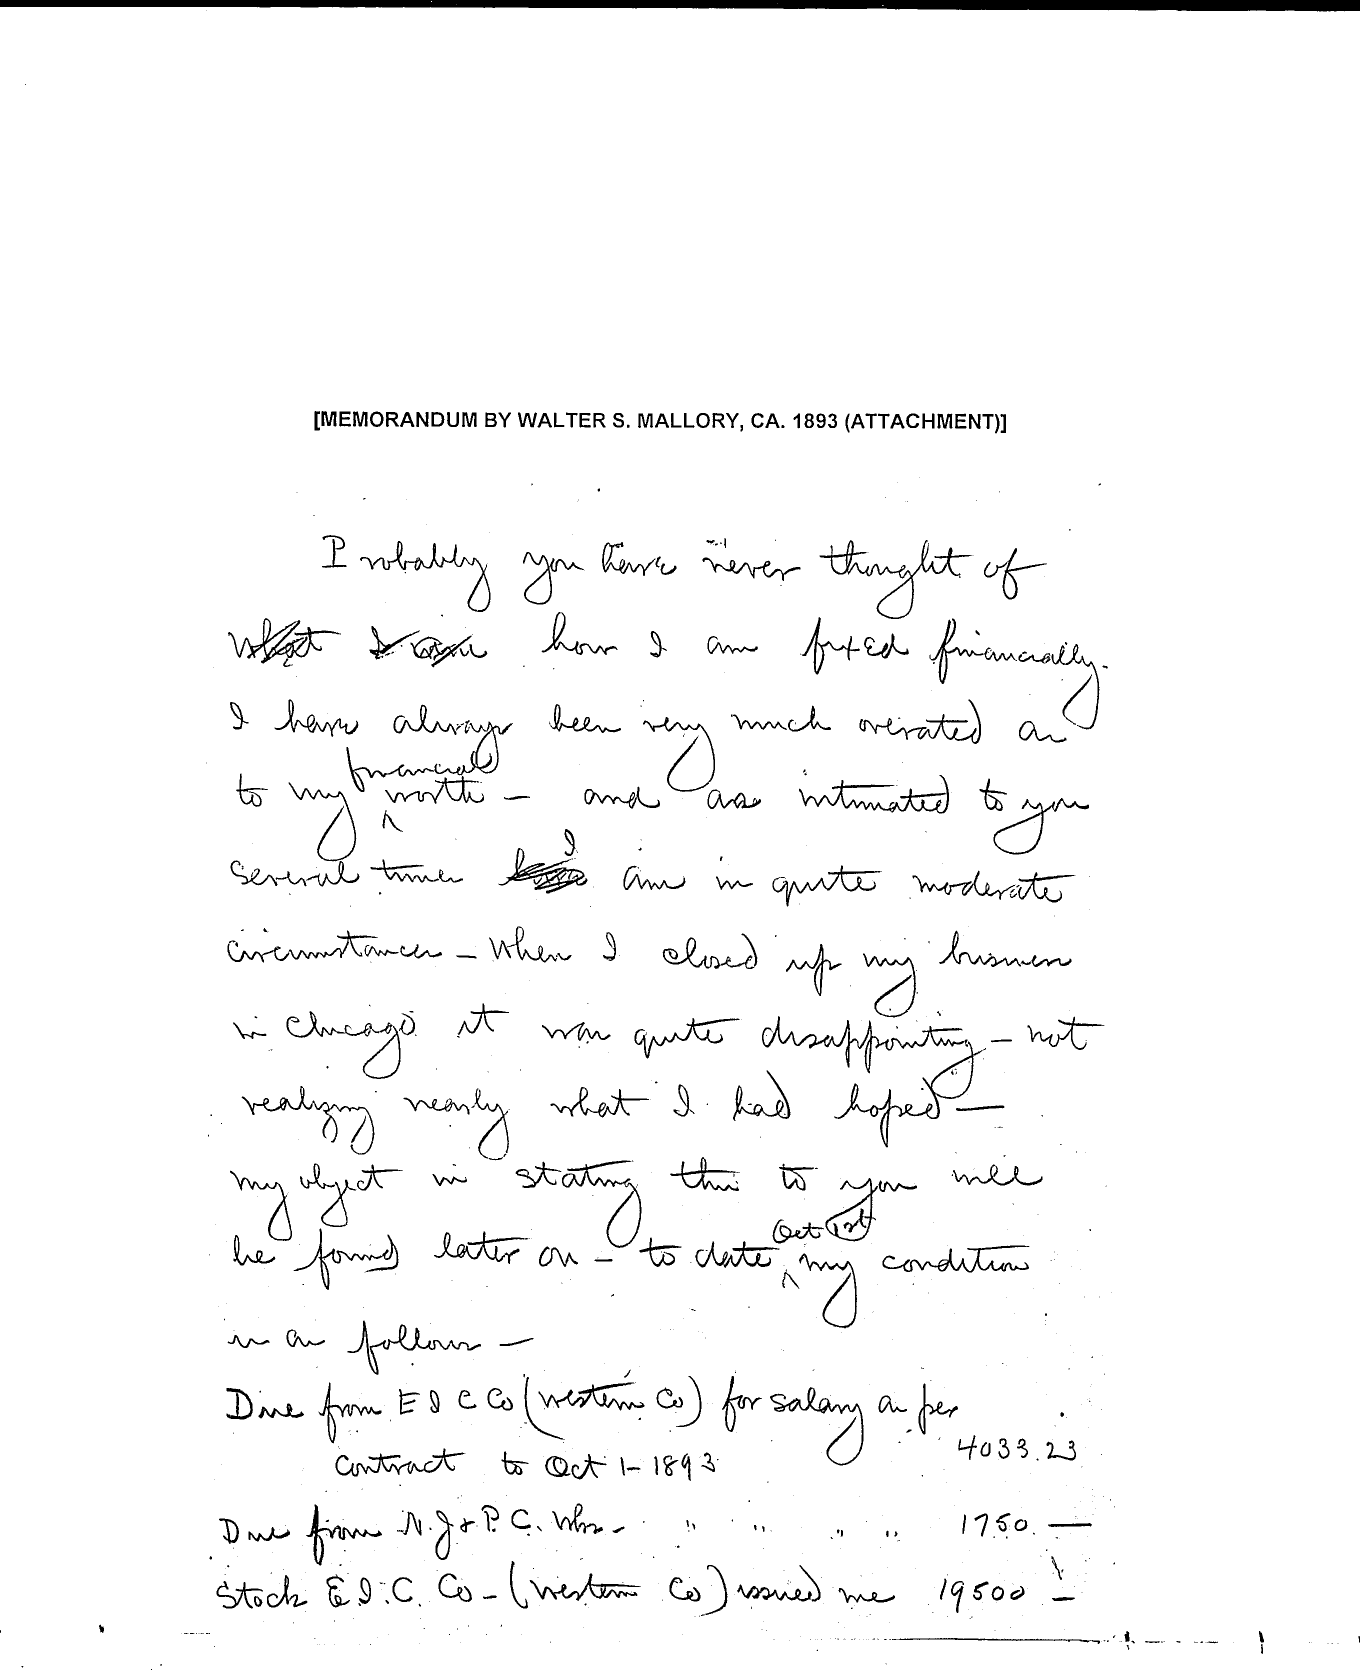 [MEMORANDUM BY WALTER S. MALLORY, CA. 1893 (ATTACHMENT)]
Probably you have never thought of
what I am how I am fixed financially.
I have always been very much overated as
to my financial worth – and as intimated to you
several times I am in quite moderate
circumstances – When I closed up my business
in Chicago it was quite disappointing – not
realizing nearly what I had hoped –
my object in stating this to you will
be found later on – to date Oct 1st my condition
is as follows –
Due from E I C Co (western Co) for salary as per
contract to Oct 1 – 1893 4033.23
Due from N.J & P. C. Wks – " " " " 1750. —
Stock E I. C. Co – (western Co) issued me 19500 —